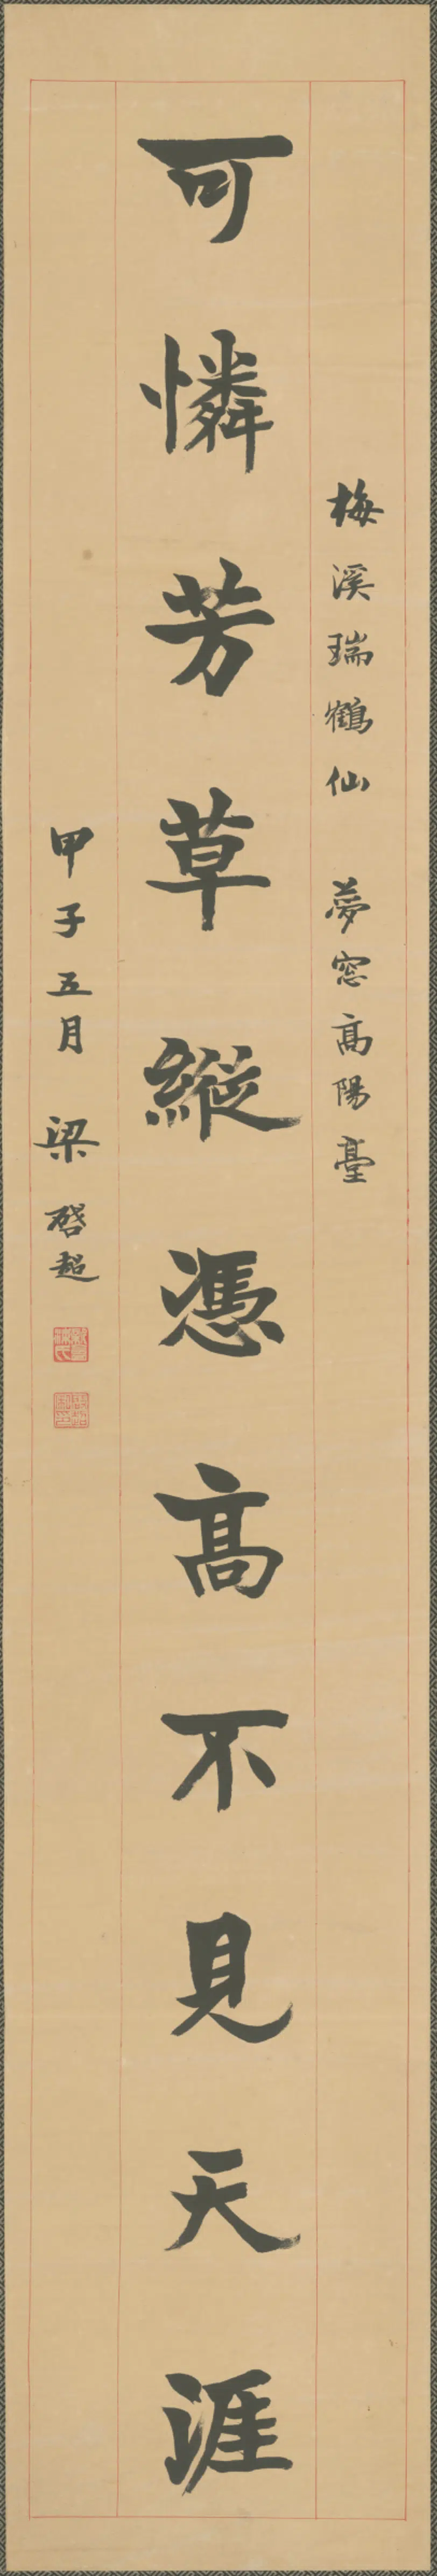 梅溪瑞鶴仙 夢窓高陽臺
可憐芳草縱憑高不見天涯
甲子五月 梁啓超